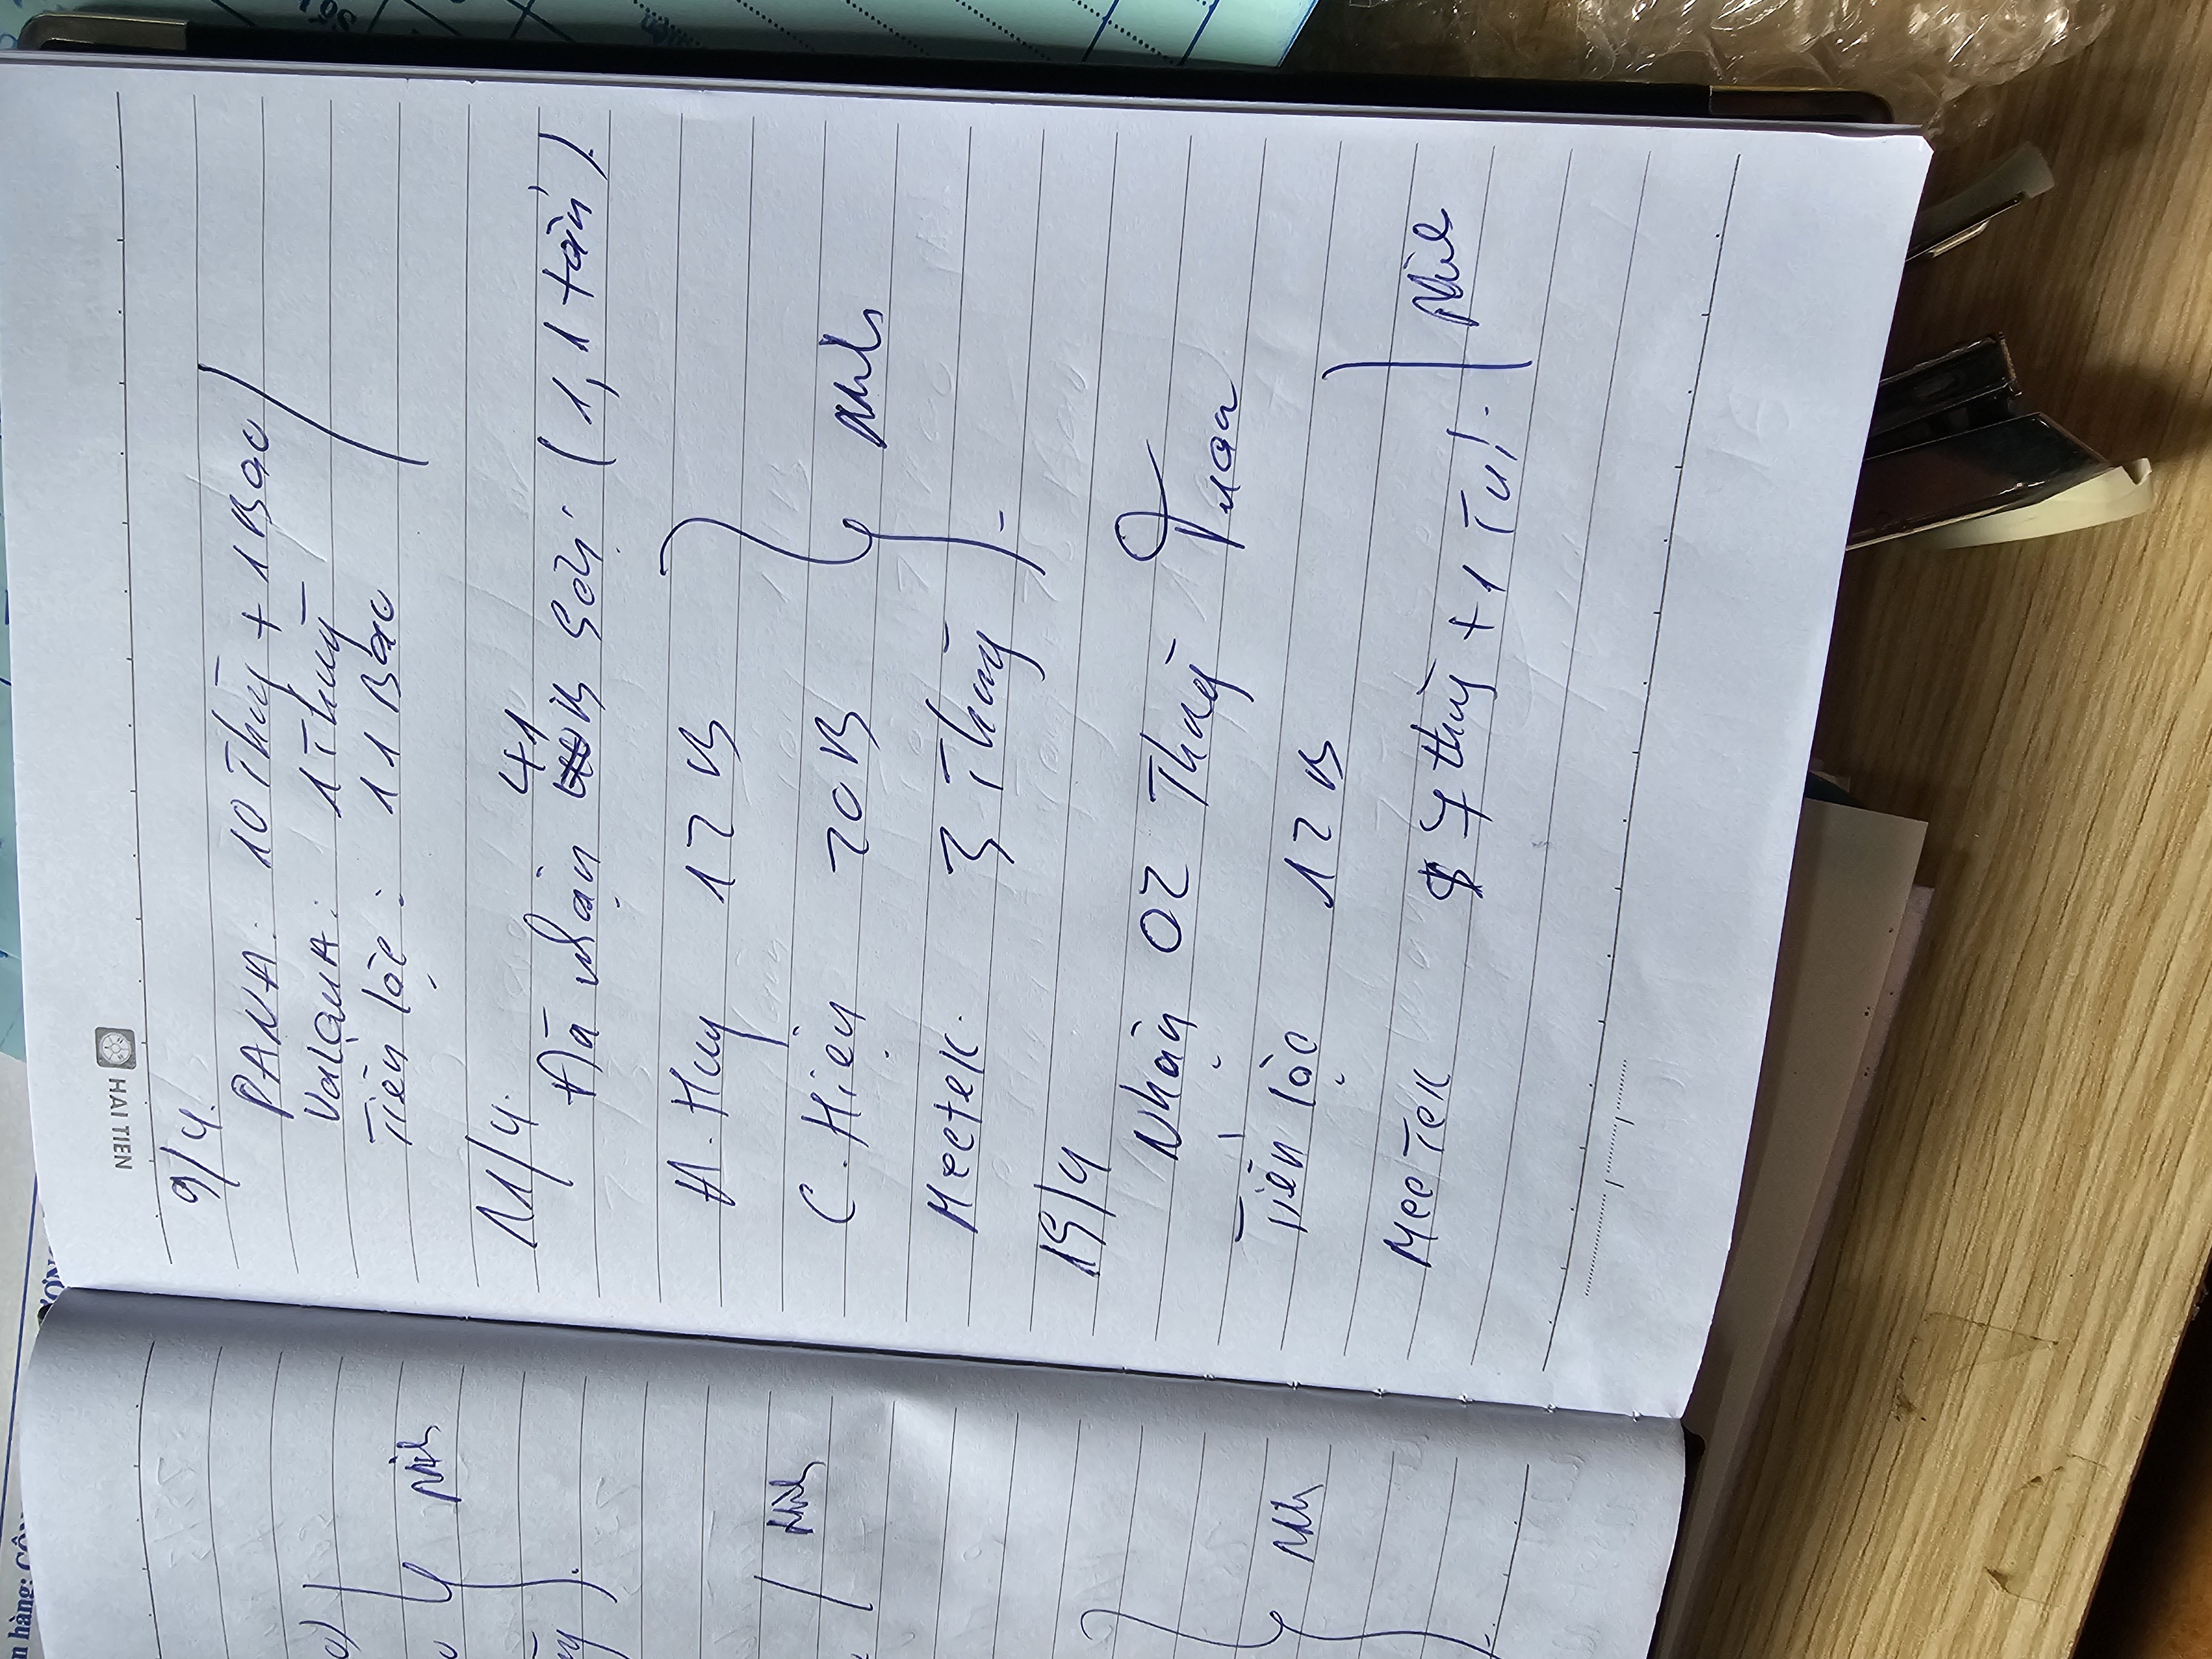 HAI TIEN
9/4.
PANA: 10 Thùng + 1 Bao
Valqua: 1 Thùng
Tiến lộc: 11 Bao
11/4.
41
Đã nhận B Sợi. (1,1 tấn).
A. Huy 12 B
C. Hiện 20B
Minh
Meetek. 3 Thùng
19/4
Nhận 02 Thùng Tuan
Tiến lộc 12 B
Minh
Meetek 7 thùng + 1 Túi.
Minh
Minh
Minh